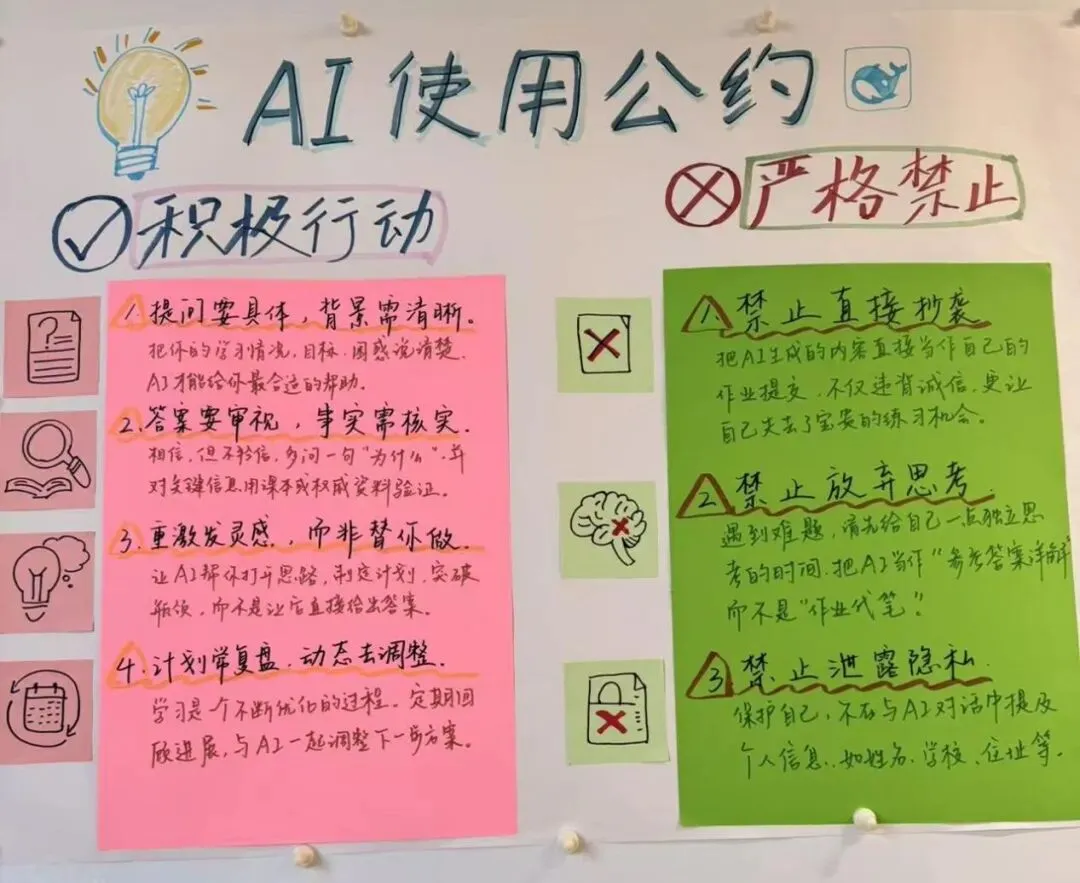 AI使用公约
积极行动
1. 提问要具体，背景需清晰。
把你的学习情况，目标、困惑说清楚，
AI才能给你最合适的帮助。
2. 答案要审视，事实需核实.
相信，但不轻信，多问一句“为什么”，并
对关键信息用课本或权威资料验证。
3. 重激发灵感，而非替你做.
让AI帮你打开思路，制定计划，突破
瓶颈，而不是让它直接给出答案。
4. 计划常复盘，动态去调整.
学习是一个不断优化的过程。定期回
顾进展，与AI一起调整下一步方案。
?
严格禁止
1. 禁止直接抄袭
把AI生成的内容直接当作自己的
作业提交，不仅违背诚信，更让
自己失去了宝贵的练习机会。
2. 禁止放弃思考.
遇到难题，请先给自己一点独立思
考的时间.把AI当作“参考答案详解”
而不是“作业代笔”.
3 禁止泄露隐私.
保护自己，不在与AI对话中提及
个人信息，如姓名、学校、住址等.